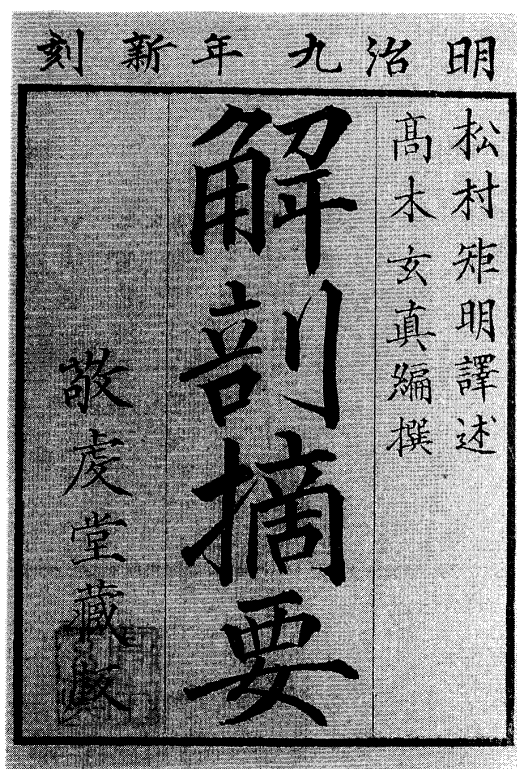 明治九年新刻
松村矩明譯述
髙木玄真編撰
解剖摘要
敬虔堂藏版